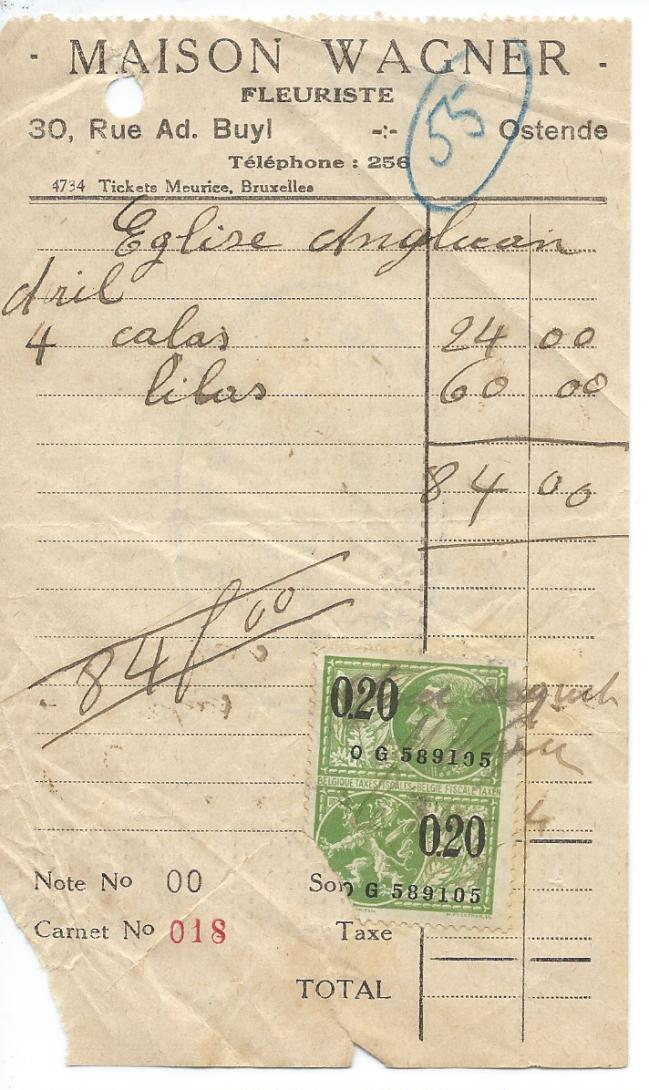 - MAISON WAGNER -
FLEURISTE
30, Rue Ad. Buyl -:- Ostende
Téléphone : 256
55
4734 Tickets Meurice, Bruxelles
Eglise Anglican
dril
4 calas 24 00
lilas 60 00
84 00
84 00
0.20
O G 589105
BELGIQUE TAXES FISCALES-BELGIE FISCALE TAXEN
0.20
O G 589105
Note No 00
Carnet No 018
Taxe
TOTAL